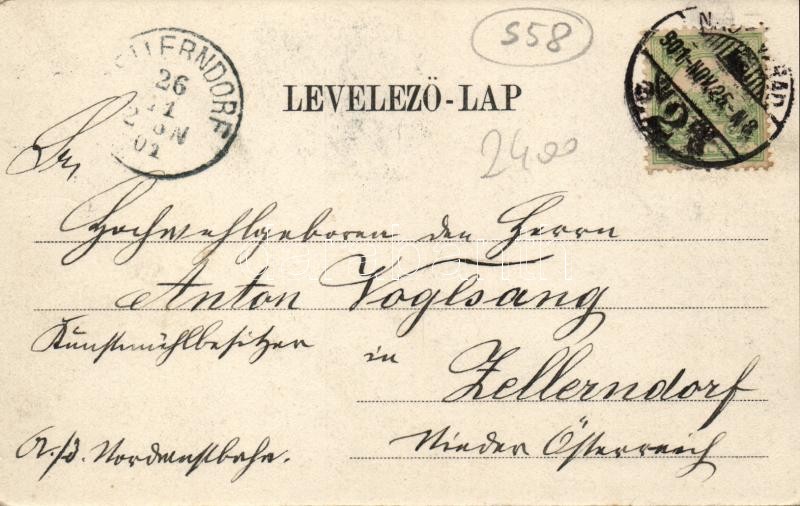 S58
ZELLERNDORF
26
11
01
NAGYVÁRAD
901 NOV. 25.
LEVELEZÖ-LAP
2400
Sr.
Hochwohlgeboren den Herrn
Anton Voglsang
Kunstmühlbesitzer in
Zellerndorf
a./d. Nordwestbahn.
Nieder Österreich